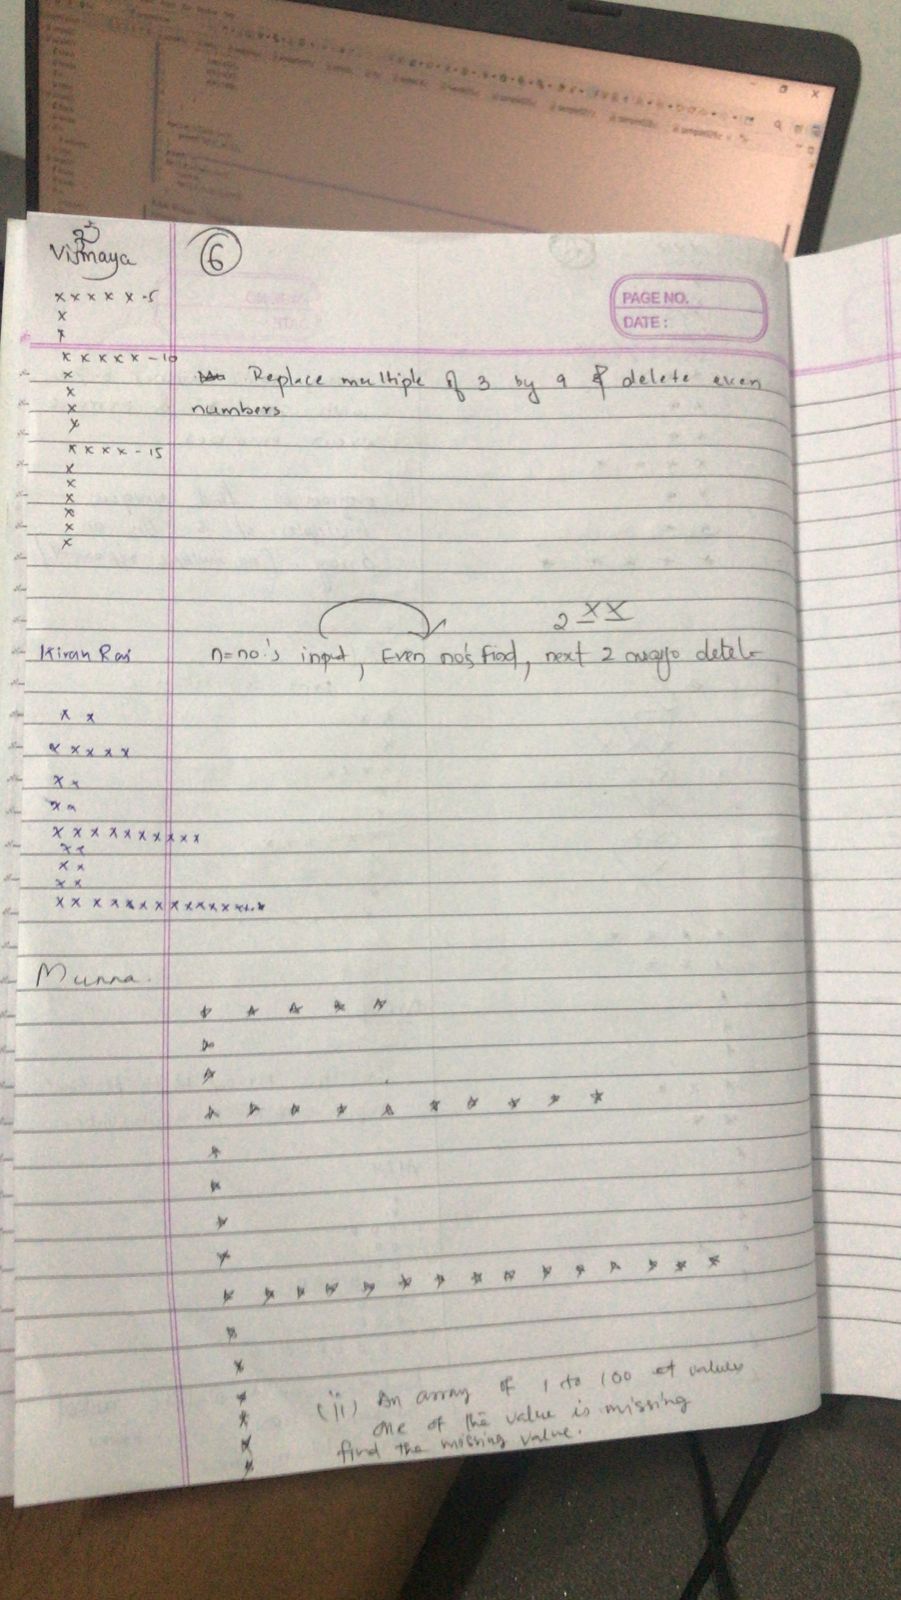 Vismaya
6
PAGE NO.
DATE :
x x x x x - 5
x
x
x x x x x - 10
x
x
x
x
x x x x - 15
x
x
x
x
x
x
Replace multiple of 3 by 9 & delete even
numbers
2 x x
Kiran Rai
n=no.'s input, Even no's find, next 2
x x
x x x x x
x x
x x
x x x x x x x x x x
x x
x x
x x
x x x x x x x x x x x x x x x
Munna.
* * * * *
*
*
* * * * * * * * * *
*
*
*
*
* * * * * * * * * * * * * *
*
*
*
*
*
*
(ii) An array of 1 to 100 values
one of the value is missing
find the missing value.